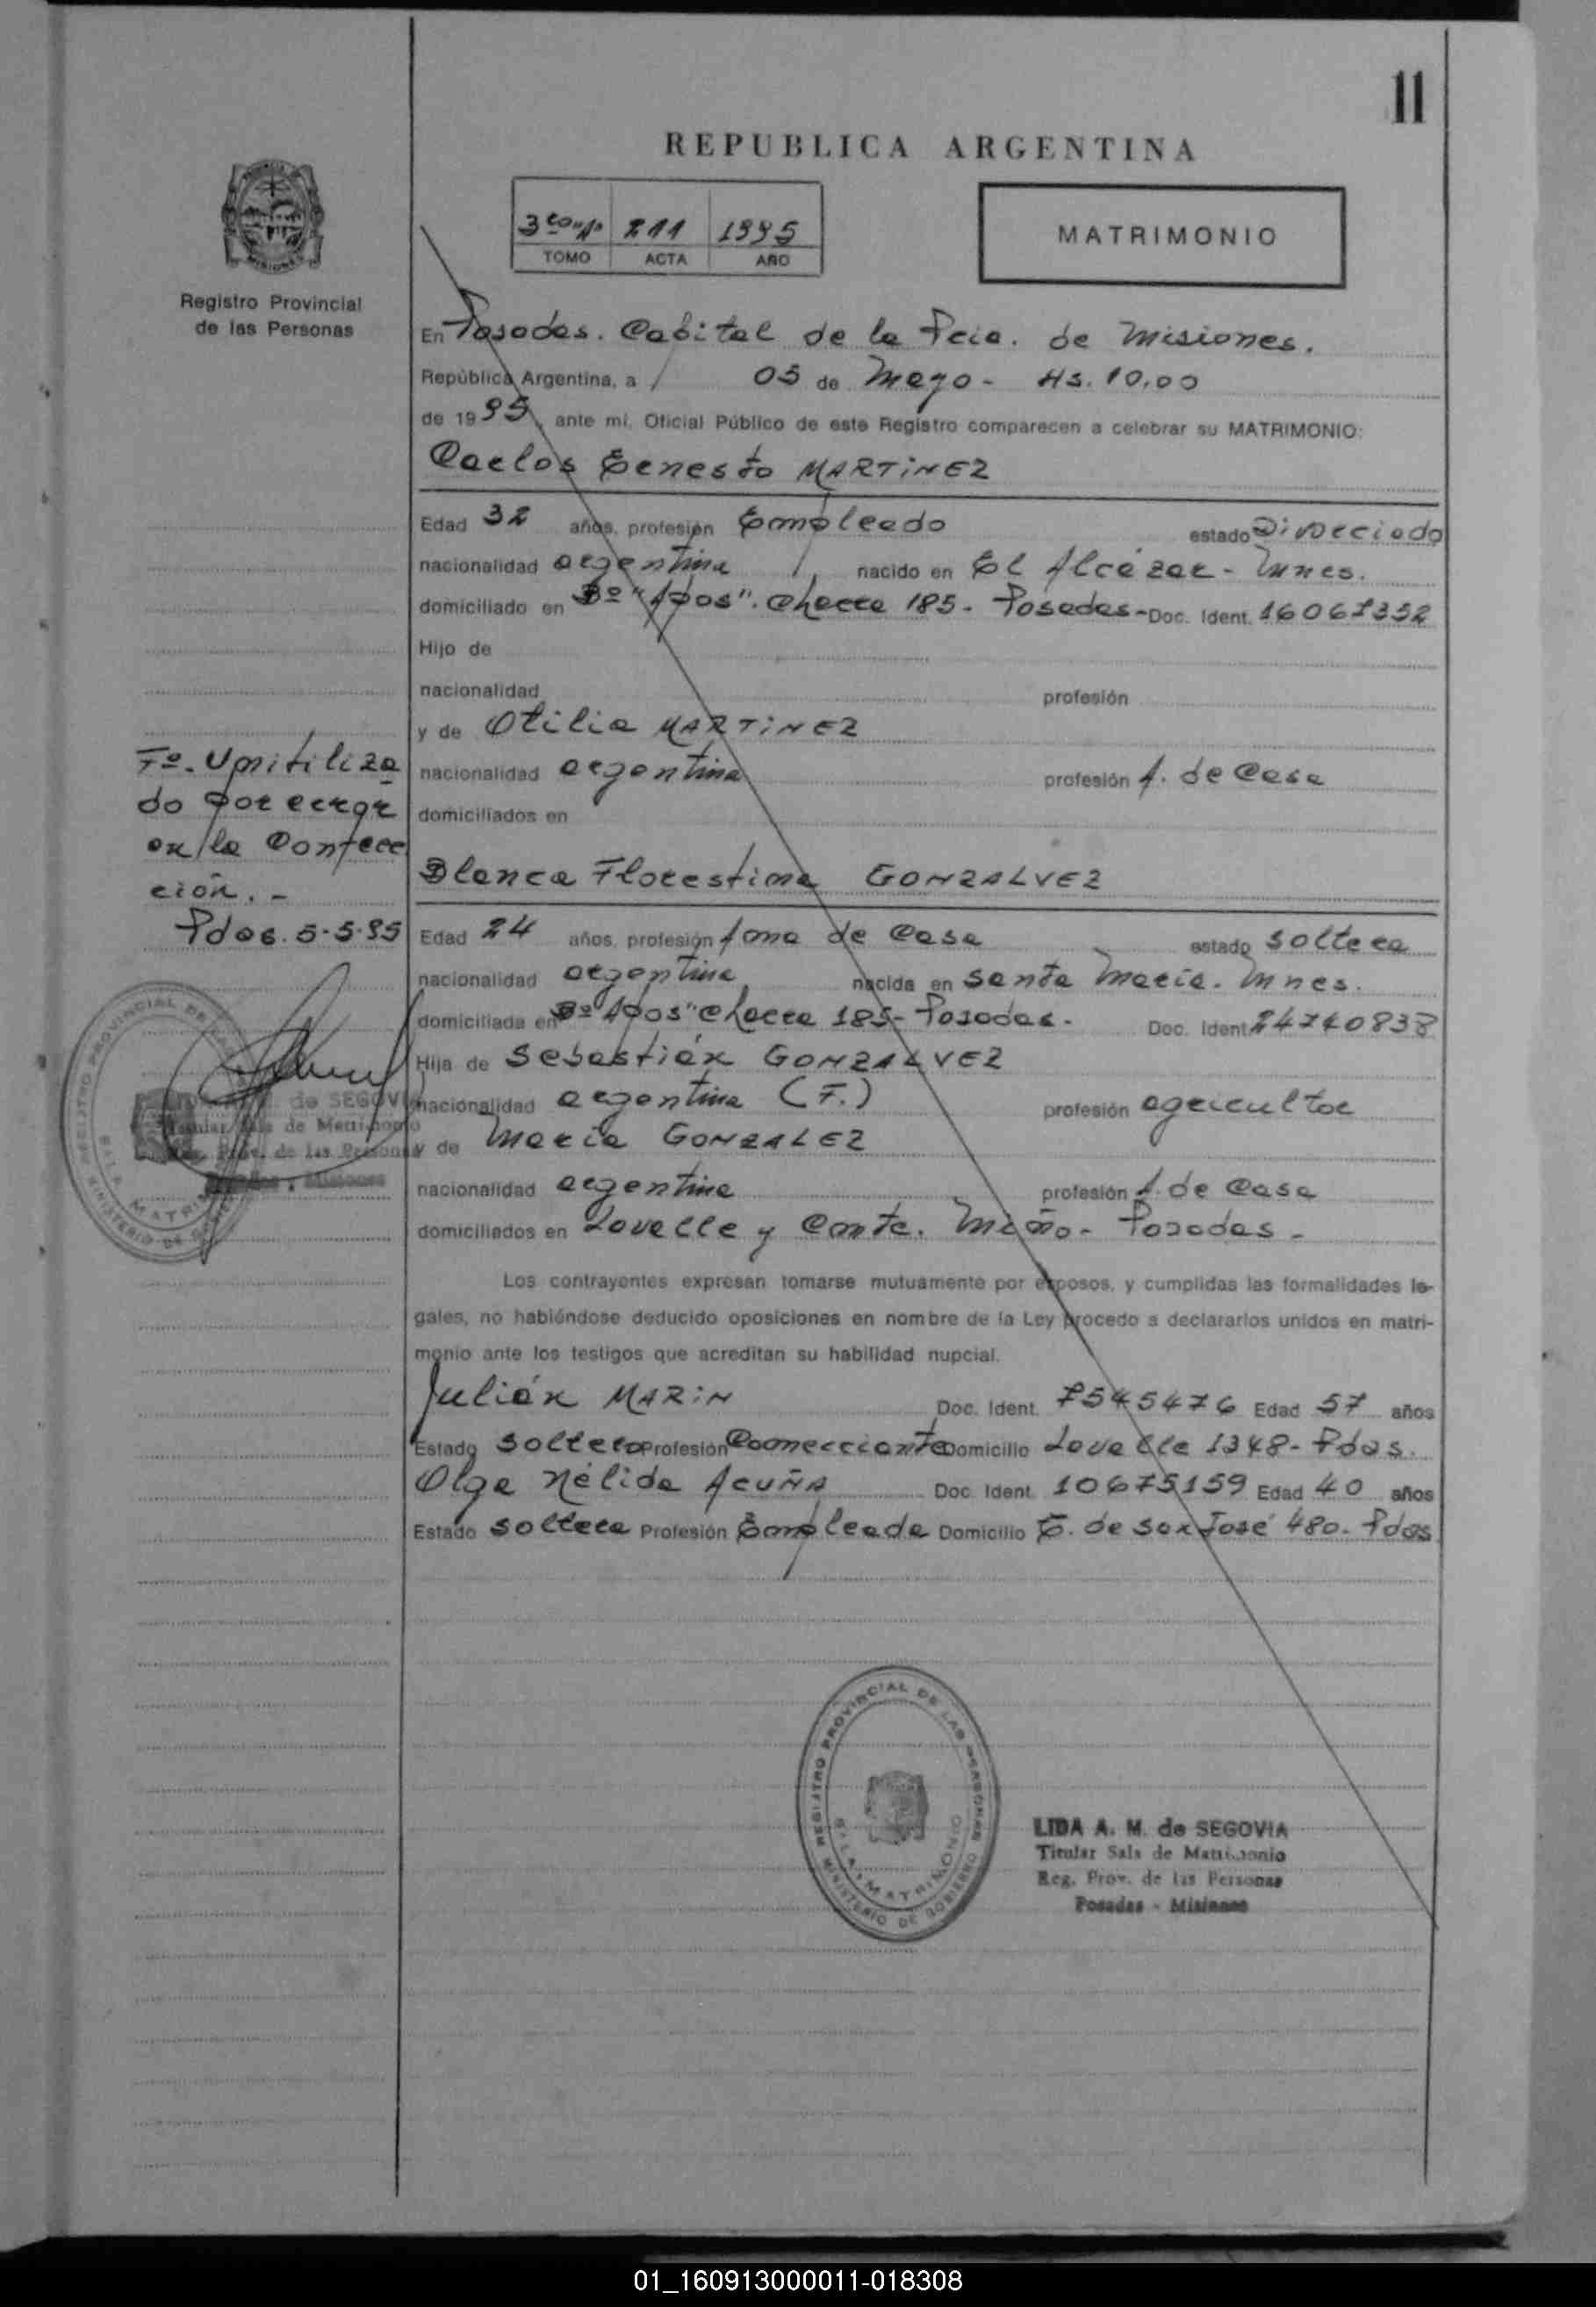 11
REPUBLICA ARGENTINA
3ro "A" 211 1995
TOMO ACTA AÑO
MATRIMONIO
Registro Provincial
de las Personas
En Posadas. Capital de la Pcia. de Misiones.
República Argentina, a 05 de Mayo - Hs. 10,00
de 1995, ante mi, Oficial Público de este Registro comparecen a celebrar su MATRIMONIO:
Carlos Ernesto MARTINEZ
Edad 32 años, profesión Empleado estado Divorciado
nacionalidad argentina nacido en El Alcázar - Mnes.
domiciliado en Bº "Apos". Chacra 185 - Posadas - Doc. Ident. 16067352
Hijo de
nacionalidad profesión
y de Otilia MARTINEZ
nacionalidad argentina profesión A. de Casa
domiciliados en
Fº. Unitiliza
do por error
en la Confec
ción. -
Pdas. 5-5-95
Blanca Florestina GONZALVEZ
Edad 24 años, profesión Ama de Casa estado soltera
nacionalidad argentina nacida en Santa María. Mnes.
domiciliada en Bº "Apos" Chacra 185 - Posadas. Doc. Ident. 24740838
Hija de Sebastián GONZALVEZ
nacionalidad argentina (F.) profesión agricultor
y de María GONZALEZ
nacionalidad argentina profesión A. de Casa
domiciliados en Lavalle y Comte. Miño - Posadas -
de SEGOVIA
Titular Sala de Matrimonio
Reg. Prov. de las Personas
Posadas - Misiones
Los contrayentes expresan tomarse mutuamente por esposos, y cumplidas las formalidades le-
gales, no habiéndose deducido oposiciones en nombre de la Ley procedo a declararlos unidos en matri-
monio ante los testigos que acreditan su habilidad nupcial.
Julián MARIN Doc. Ident. 7545476 Edad 57 años
Estado soltero Profesión Comerciante Domicilio Lavalle 1348 - Pdas.
Olga Nélida ACUÑA Doc. Ident. 10675159 Edad 40 años
Estado soltera Profesión Empleada Domicilio E. de San José 480. Pdas
REGISTRO PROVINCIAL DE LAS PERSONAS
SALA MATRIMONIO
MINISTERIO DE GOBIERNO
LIDA A. M. de SEGOVIA
Titular Sala de Matrimonio
Reg. Prov. de las Personas
Posadas - Misiones
01_160913000011-018308